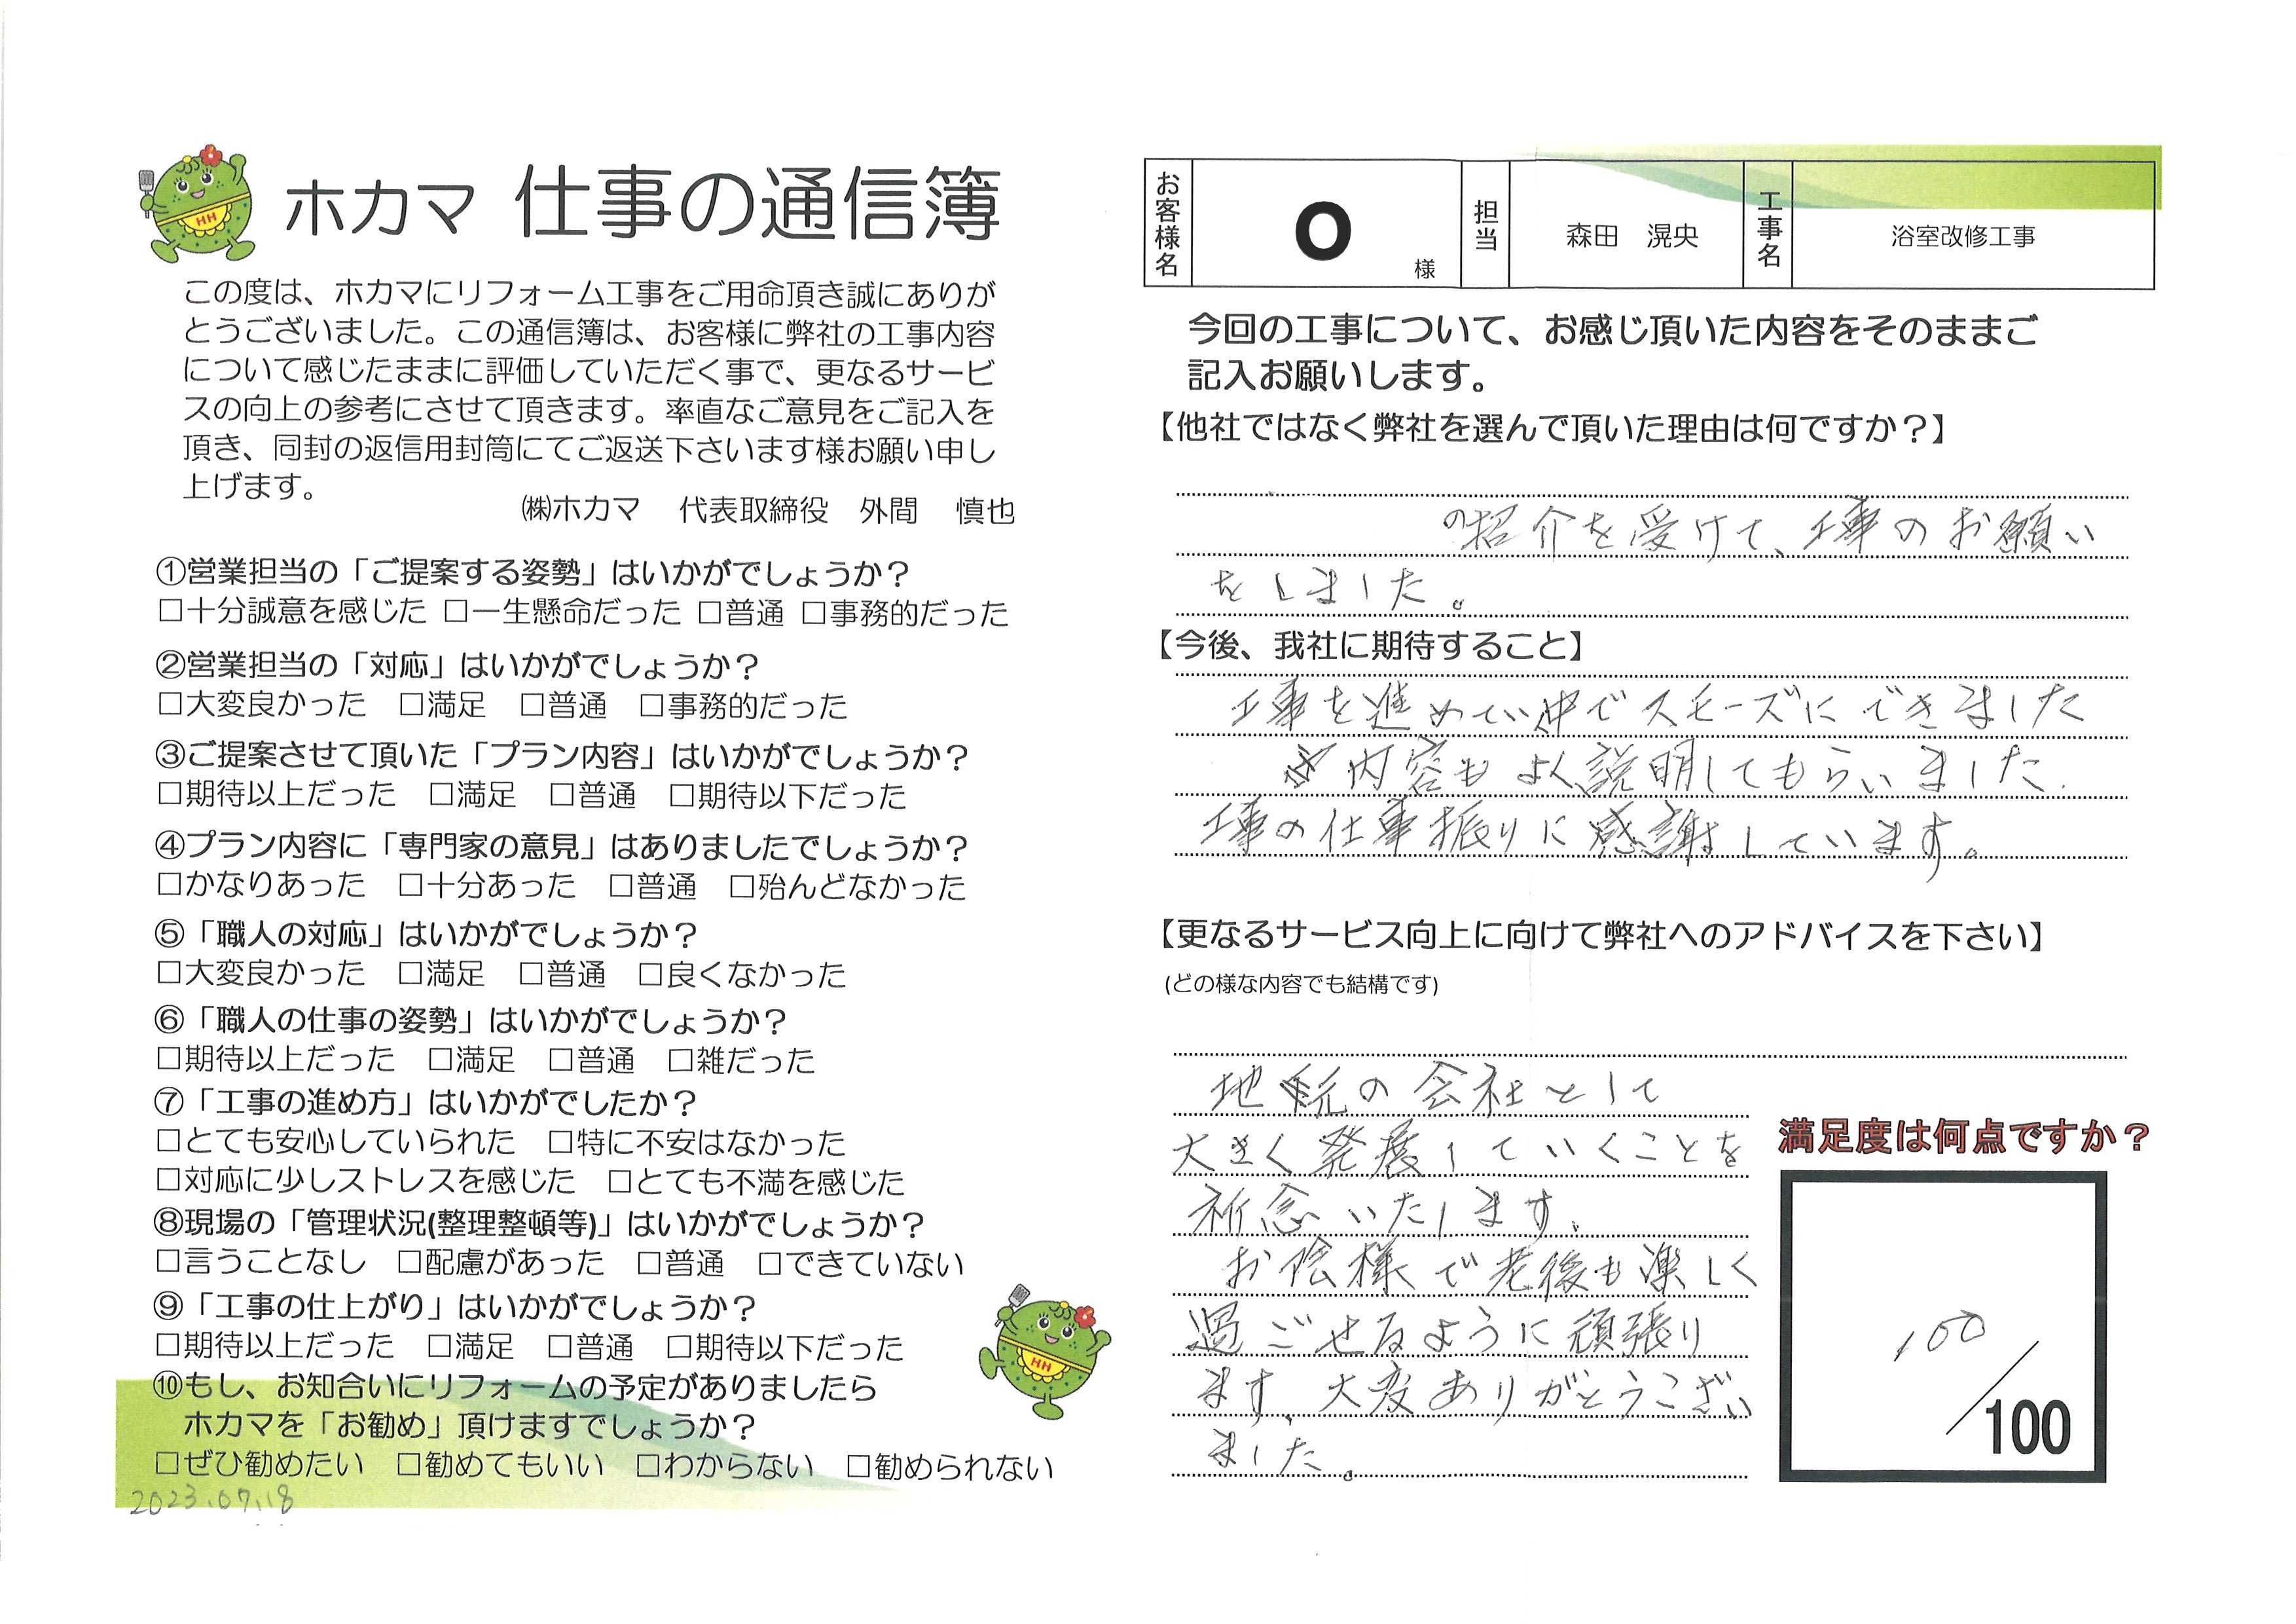 ホカマ 仕事の通信簿
この度は、ホカマにリフォーム工事をご用命頂き誠にありが
とうございました。この通信簿は、お客様に弊社の工事内容
について感じたままに評価していただく事で、更なるサービ
スの向上の参考にさせて頂きます。率直なご意見をご記入を
頂き、同封の返信用封筒にてご返送下さいます様お願い申し
上げます。
㈱ホカマ 代表取締役 外間 慎也
①営業担当の「ご提案する姿勢」はいかがでしょうか？
□十分誠意を感じた □一生懸命だった □普通 □事務的だった
②営業担当の「対応」はいかがでしょうか？
□大変良かった □満足 □普通 □事務的だった
③ご提案させて頂いた「プラン内容」はいかがでしょうか？
□期待以上だった □満足 □普通 □期待以下だった
④プラン内容に「専門家の意見」はありましたでしょうか？
□かなりあった □十分あった □普通 □殆んどなかった
⑤「職人の対応」はいかがでしょうか？
□大変良かった □満足 □普通 □良くなかった
⑥「職人の仕事の姿勢」はいかがでしょうか？
□期待以上だった □満足 □普通 □雑だった
⑦「工事の進め方」はいかがでしたか？
□とても安心していられた □特に不安はなかった
□対応に少しストレスを感じた □とても不満を感じた
⑧現場の「管理状況(整理整頓等)」はいかがでしょうか？
□言うことなし □配慮があった □普通 □できていない
⑨「工事の仕上がり」はいかがでしょうか？
□期待以上だった □満足 □普通 □期待以下だった
⑩もし、お知合いにリフォームの予定がありましたら
ホカマを「お勧め」頂けますでしょうか？
□ぜひ勧めたい □勧めてもいい □わからない □勧められない
2023.07.18
HH
HH
お客様名 O 様 担当 森田 滉央 工事名 浴室改修工事
今回の工事について、お感じ頂いた内容をそのままご
記入お願いします。
【他社ではなく弊社を選んで頂いた理由は何ですか？】
の紹介を受けて、工事のお願い
をしました。
【今後、我社に期待すること】
工事を進めてい中でスモーズにできました
内容もよく説明してもらいました.
工事の仕事振りに感謝しています。
【更なるサービス向上に向けて弊社へのアドバイスを下さい】
(どの様な内容でも結構です)
地の会社として
大きく発展していくことを
祈念いたします.
お陰様で老後も楽しく
過ごせるように頑張り
ます、大変ありがとうござい
ました。
満足度は何点ですか？
100
/100